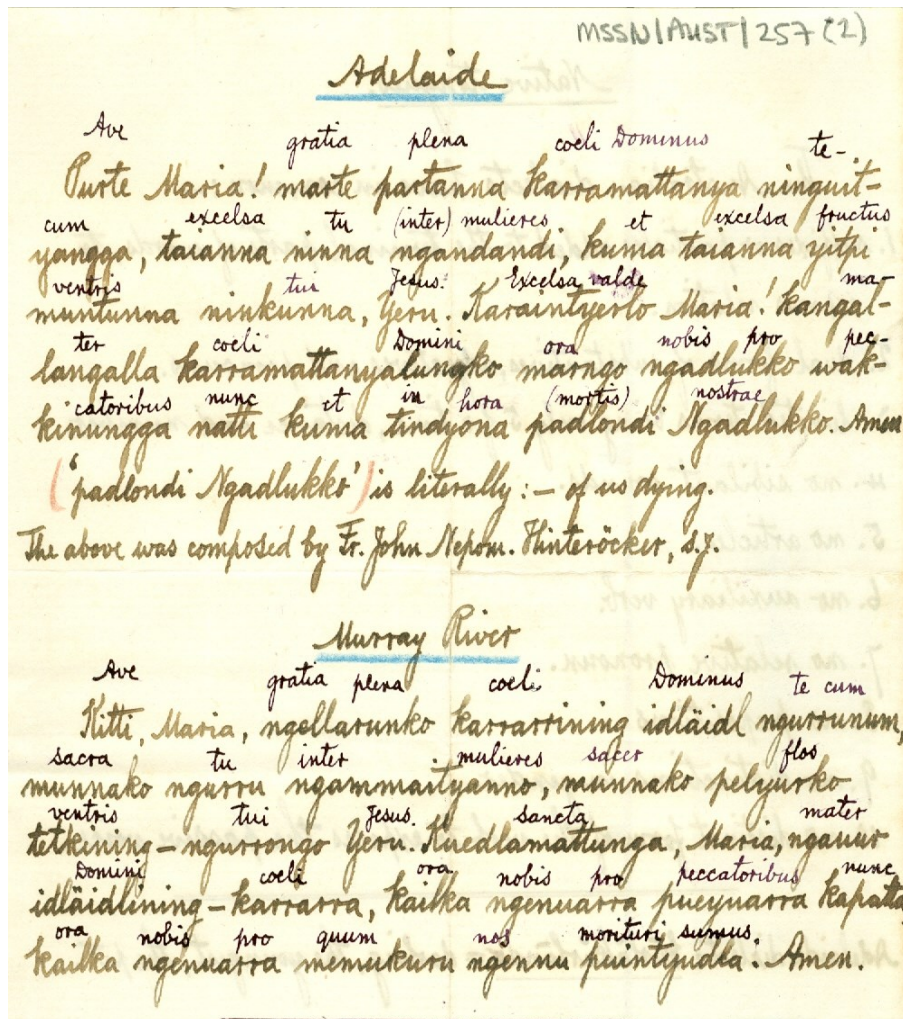 MSSN/AUST/257 (2)
Adelaide
Ave gratia plena coeli Dominus te-
Purte Maria! marte partanna karramattanya ninguit-
cum excelsa tu (inter) mulieres et excelsa fructus
yangga, taianna ninna ngandandi, kuma taianna yitpi
ventris tui Jesus. Excelsa valde ma-
muntunna ninkunna, Yeru. Karaintyerlo Maria! kangal-
ter coeli Domini ora nobis pro pec-
langalla karramattanyalungko marngo ngadlukko wak-
catoribus nunc et in hora (mortis) nostrae
kinungga natti kuma tindyona padlondi Ngadlukko. Amen
('padlondi Ngadlukko') is literally: — of us dying.
The above was composed by Fr. John Nepom. Hinteröcker, S.J.
Murray River
Ave gratia plena coeli Dominus te cum
Kitti, Maria, ngellarunko karrarrining idläidl ngurrunum,
sacra tu inter mulieres sacer flos
munnako ngurru ngammaityanno, munnako pelyurko
ventris tui Jesus. sancta mater
tetkining-ngurrongo Yeru. Kuedlamattunga, Maria, ngauur
Domini coeli ora nobis pro peccatoribus nunc
idläidlining-karrarra, kailka ngenuarra pueyuarra kapatta
ora nobis pro quum nos morituri sumus.
kailka ngenuarra memukuru ngennu puintyudla. Amen.